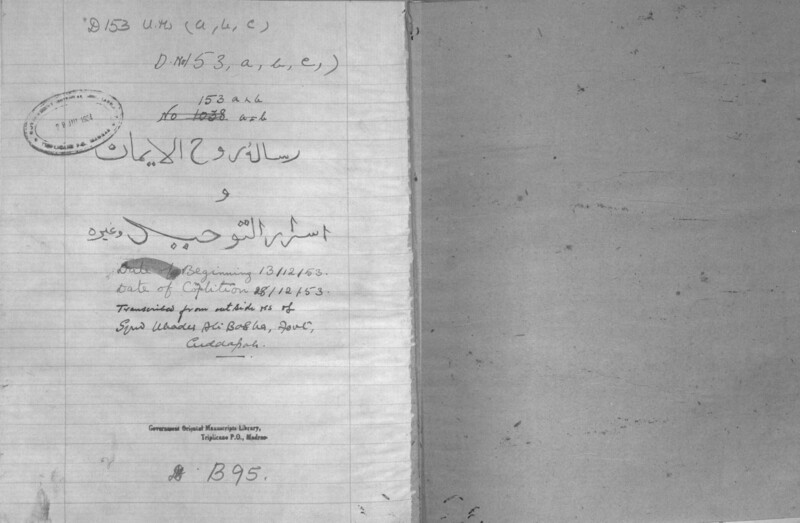 D 153 U.M (a, b, c)
D. No 153, a, b, c,)
153 a & b
No 1038 a & b
رسالہ روح الایمان
و
اسرار التوحید وغیرہ
Date of Beginning 13/12/53.
Date of 28/12/53.
Transcribed from outside Ms of
Syed Khader Ali Basha,
Cuddapah.
Government Oriental Manuscripts Library,
Triplicane P.O., Madras
B 95.